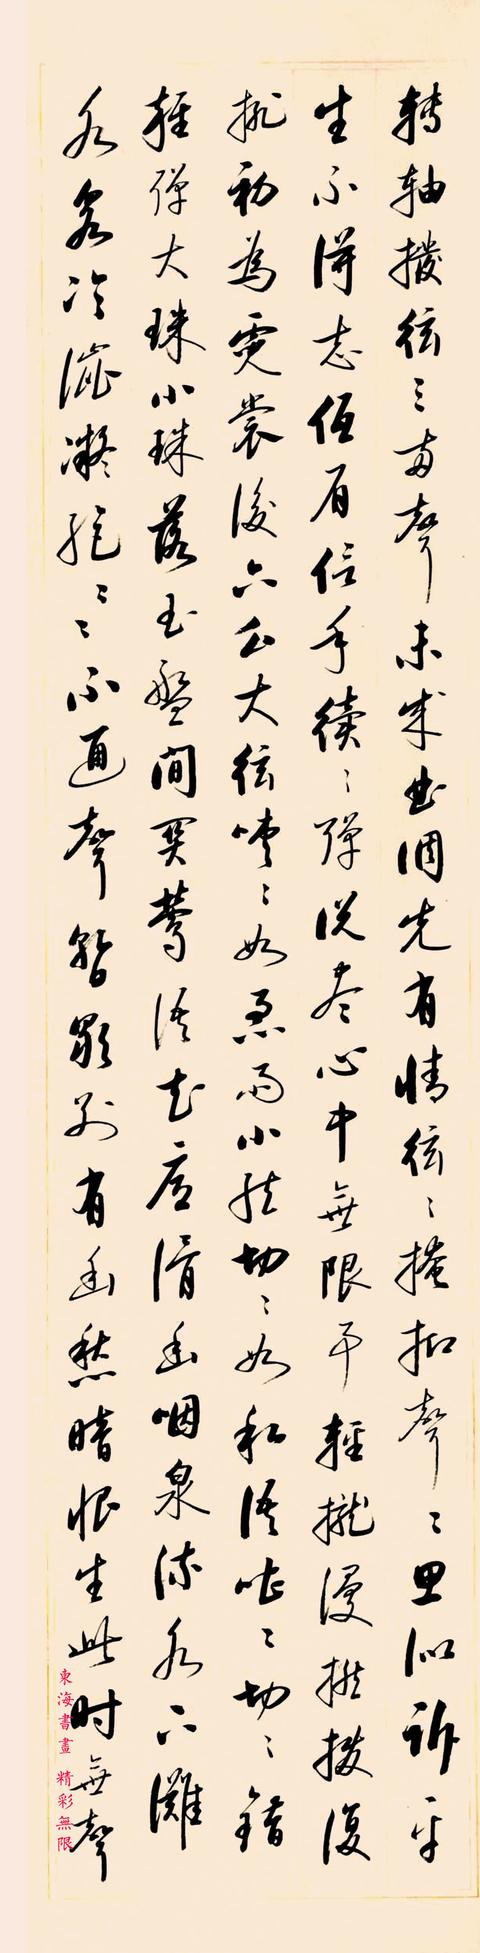 轉軸撥絃三兩聲未成曲調先有情絃〻掩抑聲〻思似訴平
生不得志低眉信手續〻彈說盡心中無限事輕攏慢撚撥復
挑初為霓裳後六幺大絃嘈〻如急雨小絃切〻如私語嘈〻切〻錯
雜彈大珠小珠落玉盤間關鶯語花底滑幽咽泉流水下灘
水泉冷澀凝絕〻〻不通聲暫歇別有幽愁暗恨生此時無聲
東海書畫 精彩無限